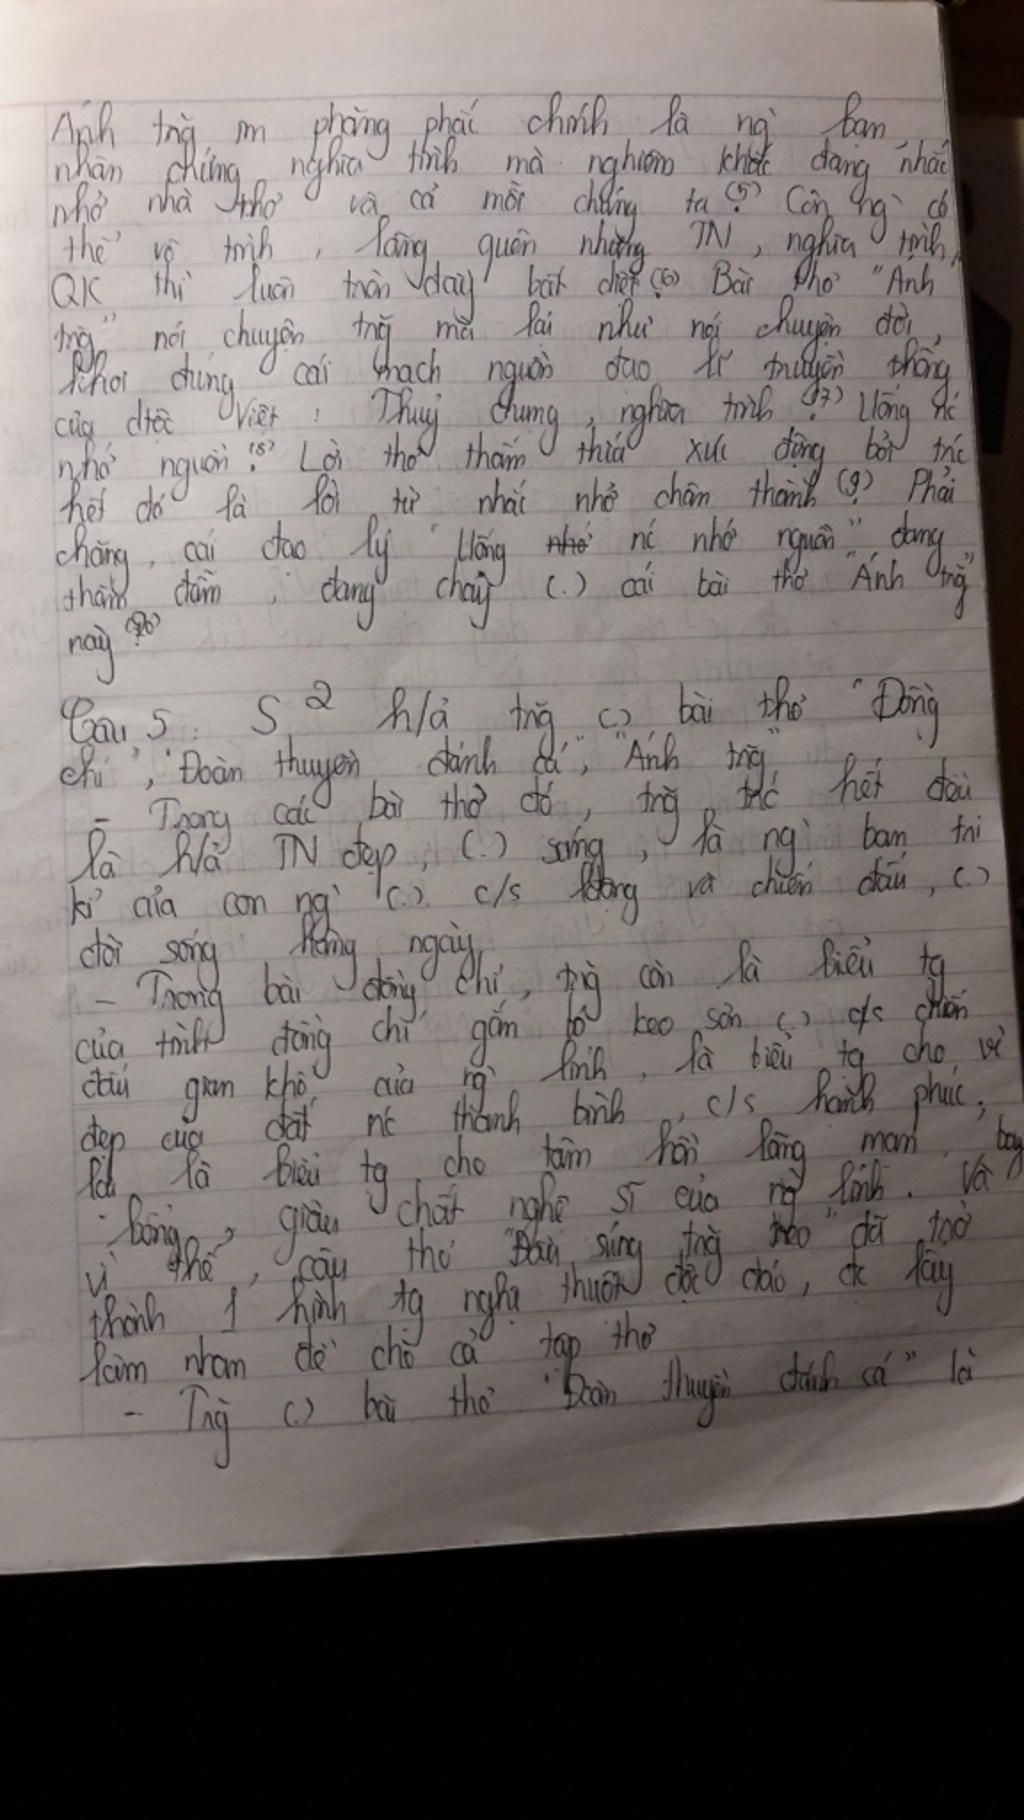 Ánh trăg im phăng phắc chính là ngì bạn
nhân chứng nghĩa tình mà nghiêm khắc đang nhắc
nhở nhà thơ và cả mỗi chúng ta (5). Con ngì có
thể vô tình, lãng quên nhưng TN, nghĩa tình,
QK thì luôn tròn đầy bất diệt (6). Bài thơ "Ánh
trăg" nói chuyện trăg mà lại như nói chuyện đời,
khơi đúng cái mạch nguồn đạo lí truyền thống
của dtộc Việt: Thuỷ chung, nghĩa tình (7). Uống nc
nhớ nguồn (8). Lời thơ thấm thía xúc động bởi trc
hết đó là lời tự nhắc nhở chân thành (9). Phải
chăng, cái đạo lý "Uống nhớ nc nhớ nguồn" đang
thấm đẫm, đang chảy (.) cái bài thơ "Ánh trăg"
này (10)?
Câu 5: S² h/ả trăg (.) bài thơ "Đồng
chí", "Đoàn thuyền đánh cá", "Ánh trăg"
- Trong các bài thơ đó, trăg trc hết đều
là h/ả TN đẹp, (.) sáng, là ngì bạn tri
kỉ của con ngì (.) c/s lđộng và chiến đấu, (.)
đời sống hằng ngày
- Trong bài đồng chí, trăg còn là biểu tg
của tình đồng chí gắn bó keo sơn (.) c/s chiến
đấu gian khổ của ng lính, là biểu tg cho vẻ
đẹp của đất nc thanh bình, c/s hạnh phúc;
là biểu tg cho tâm hồn lãng mạn, bay
bổng, giàu chất nghệ sĩ của ng lính. Và
vì thế, câu thơ "Đầu súng trăg treo" đã trở
thành 1 hình tg nghị thuật độc đáo, đc lấy
làm nhan đề cho cả tập thơ
- Trăg (.) bài thơ "Đoàn thuyền đánh cá" là